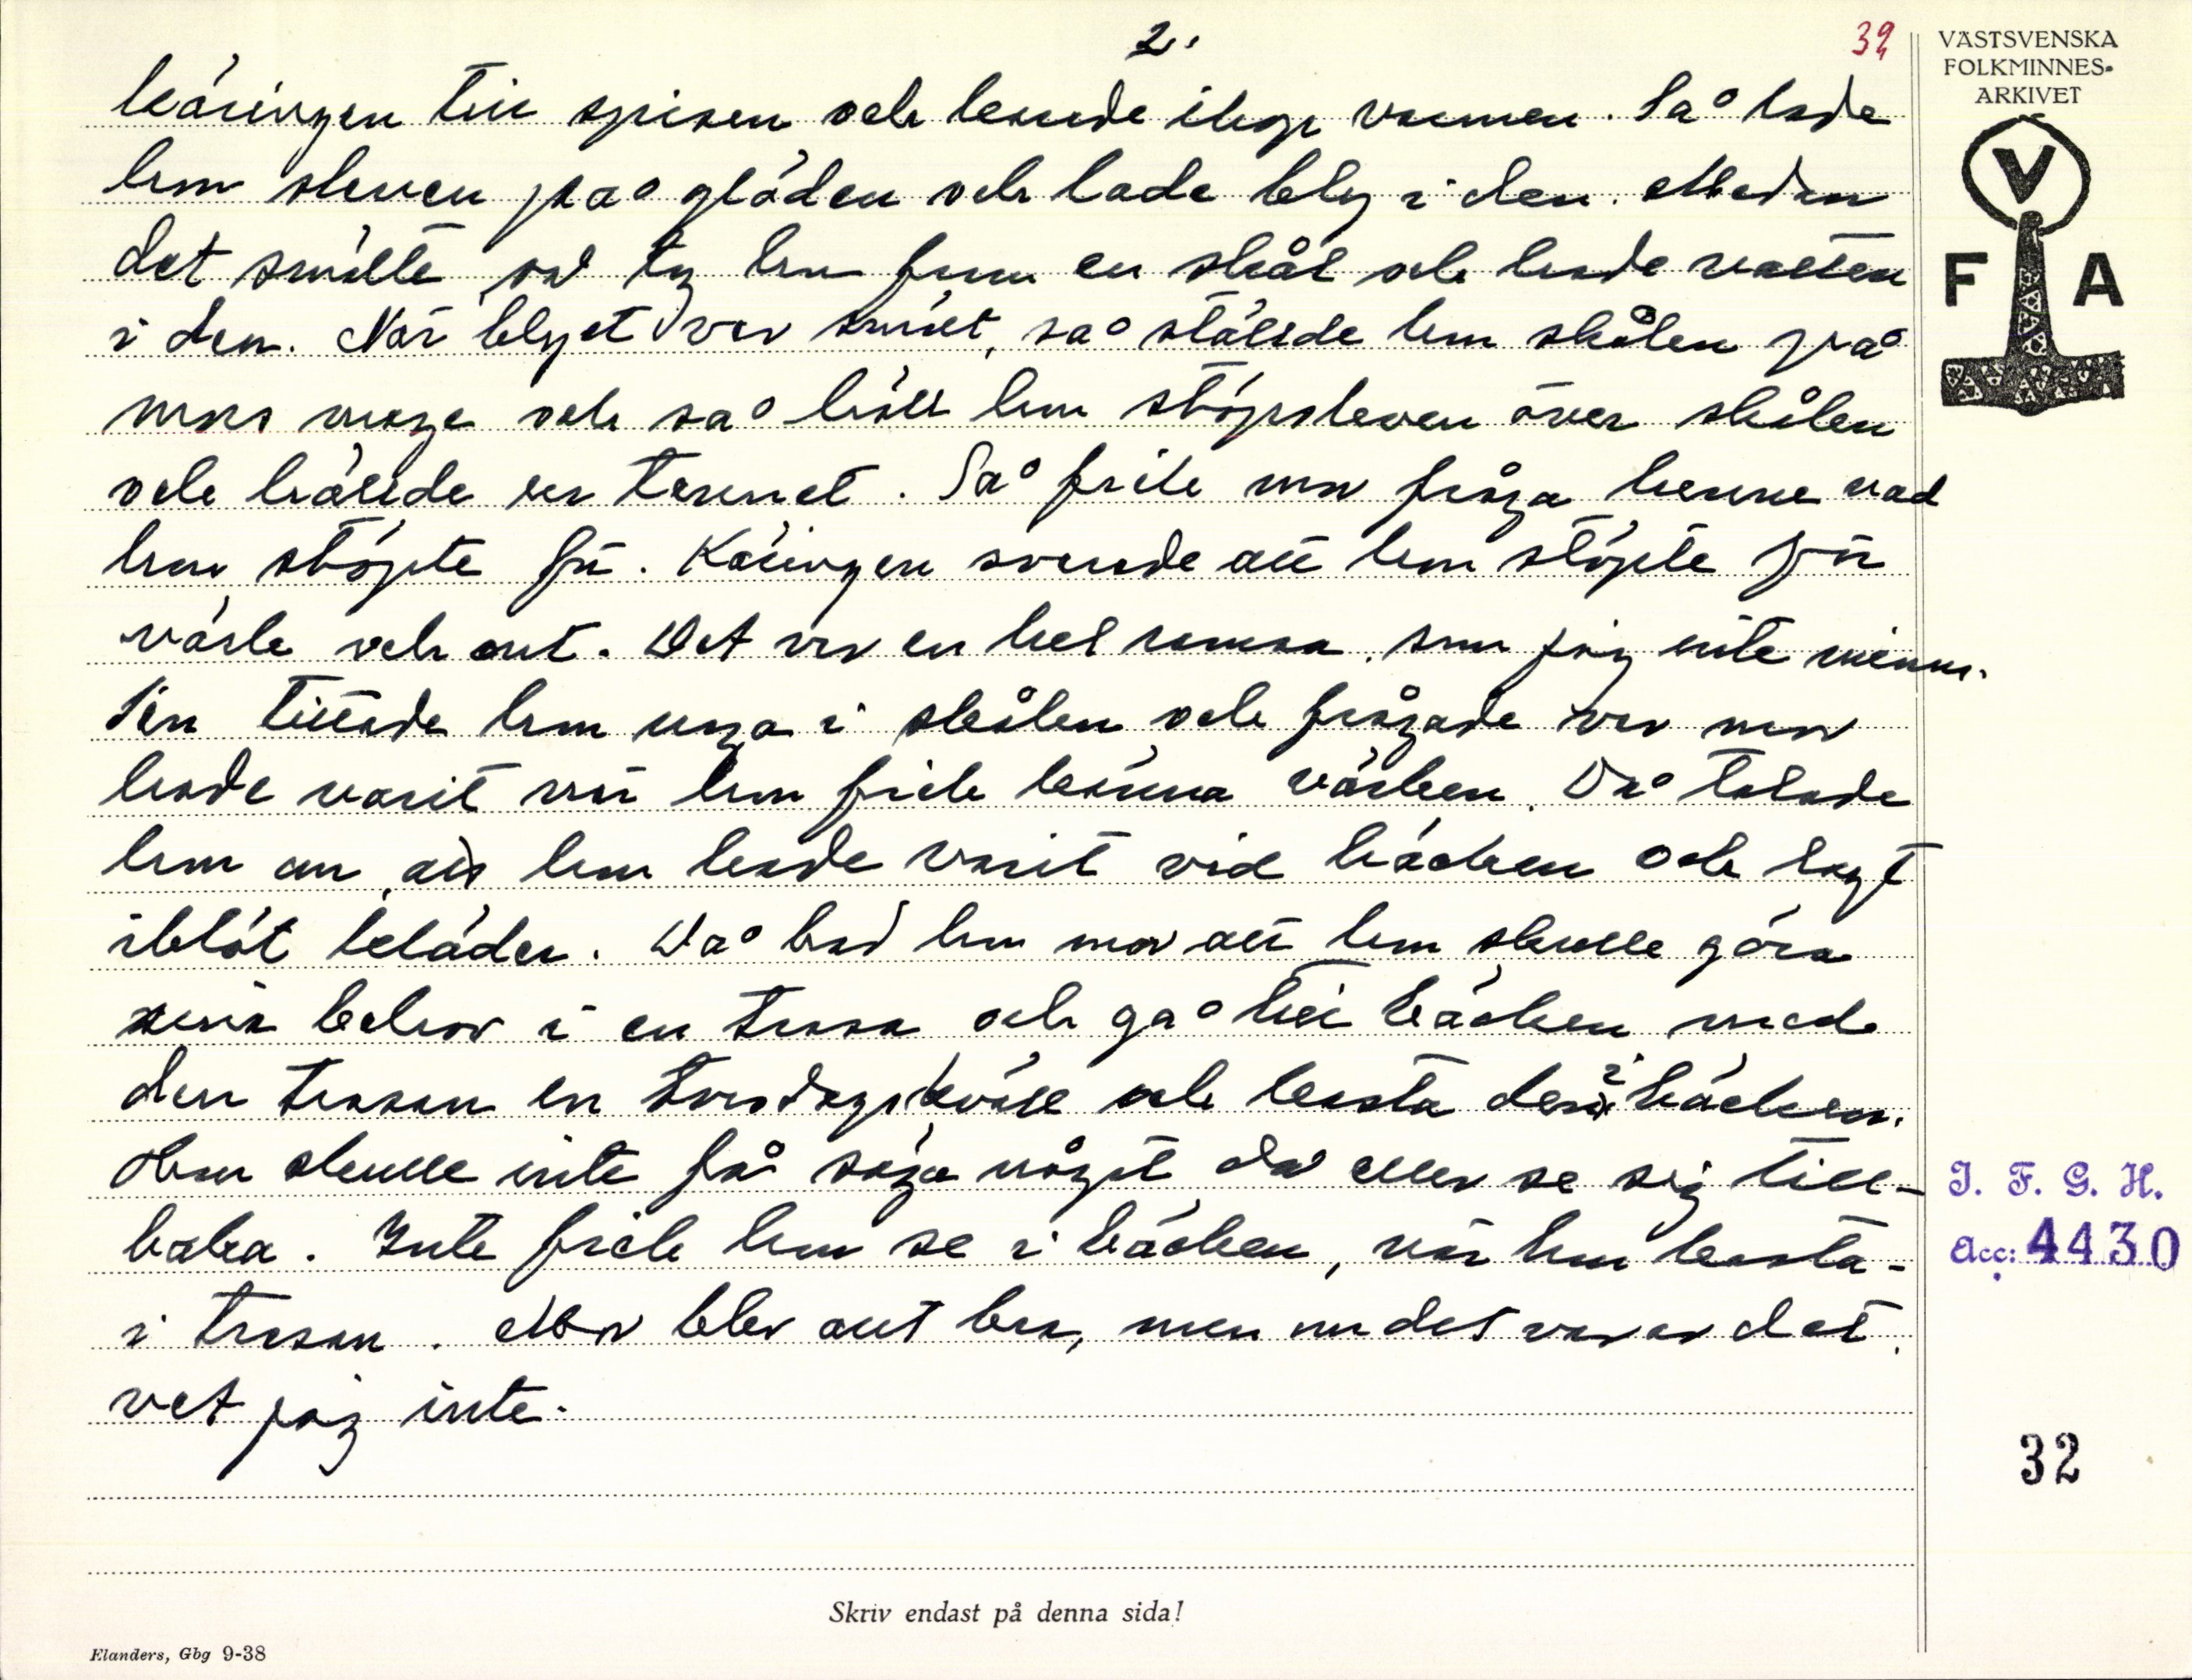 2.
32
VÄSTSVENSKA
FOLKMINNES-
ARKIVET
V
F A
käringen till spisen och kastade ihop varmen. Så lade
hon sleven på glöden och lade bly i den. Medan
det smälte tog hon fram en skål och hade vatten
i den. När blyet var smält, så ställde hon skålen på
mors mage och så höll hon stöpsleven över skålen
och hällde ur tennet. Så fick mor fråga henne vad
hon stöpte för. Käringen svarade att hon stöpte för
värk och ont. Det var en hel ramsa, som jag inte minns.
Sen tittade hon noga i skålen och frågade var mor
hade varit när hon fick känna värken. Då talade
hon om att hon hade varit vid bäcken och lagt
iblöt kläder. Då bad hon mor att hon skulle göra
sina behov i en trasa och gå till bäcken med
den trasan en torsdagskväll och kasta den i bäcken.
Hon skulle inte få säga något då eller se sig till-
baka. Inte fick hon se i bäcken, när hon kasta-
i trasan. Mor blev ant bra, men om det var av det
vet jag inte.
J. F. G. H.
Acc: 4430
32
Skriv endast på denna sida!
Elanders, Gbg 9-38